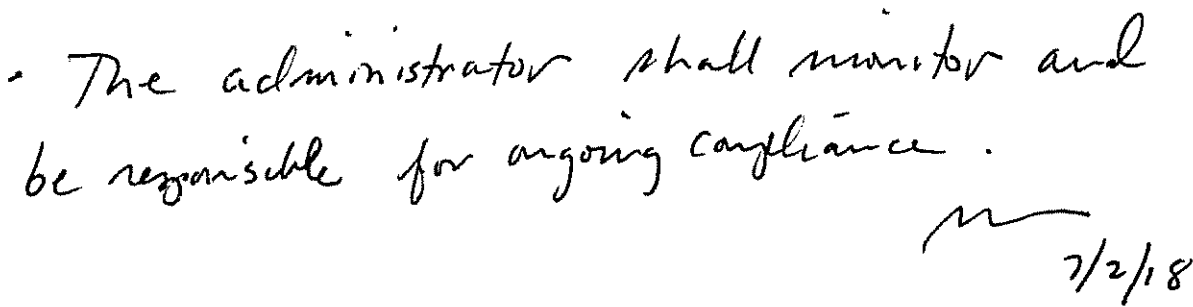 • The administrator shall monitor and
be responsible for ongoing compliance.
7/2/18